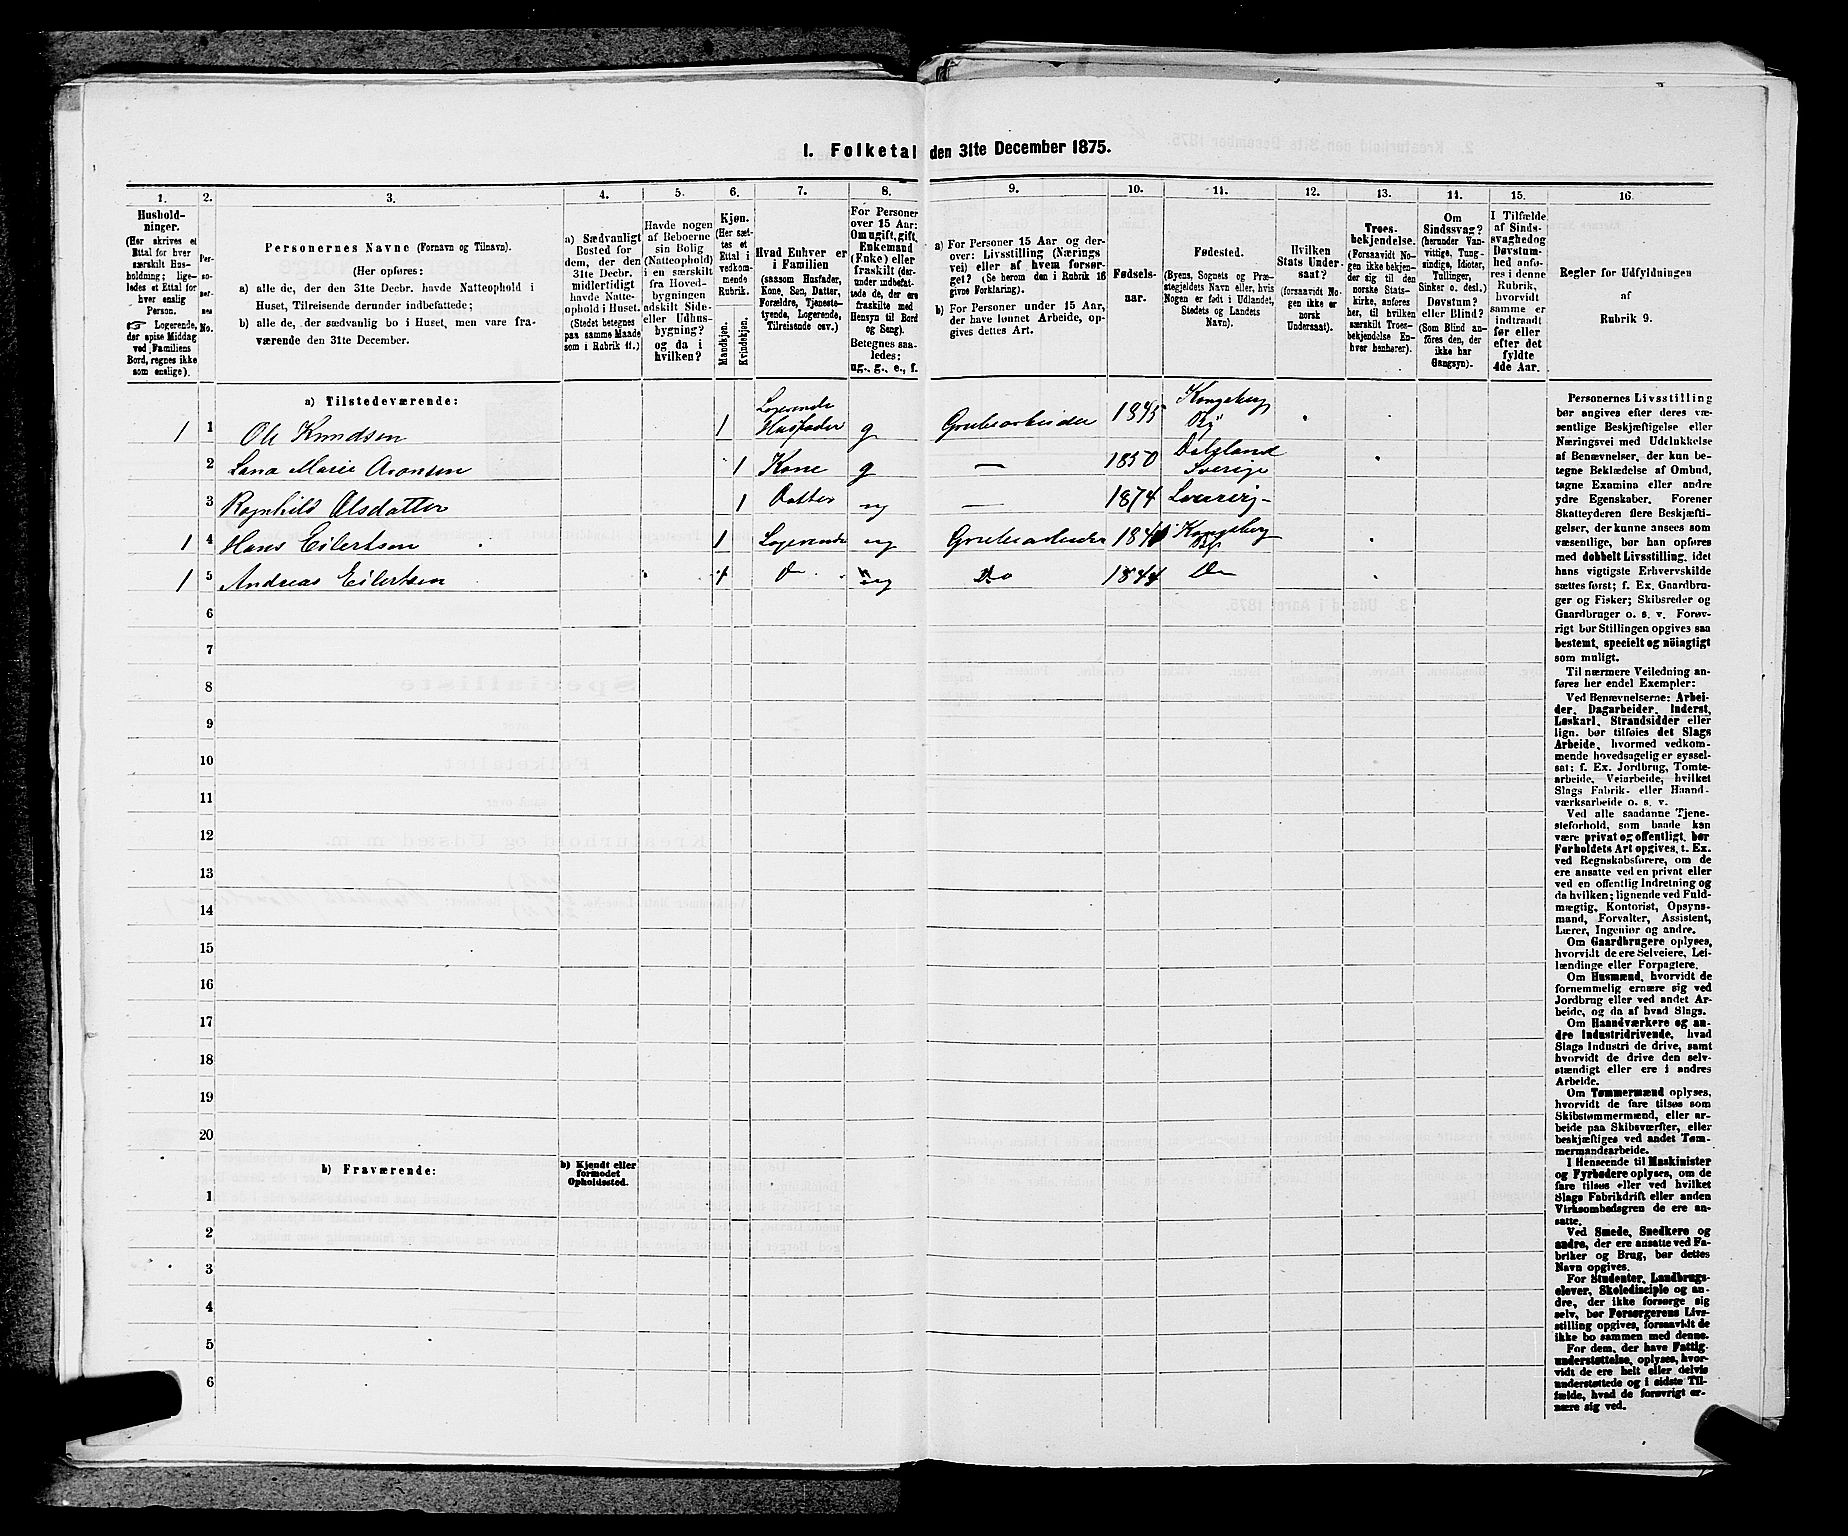 I. Folketal den 31te December 1875.
1. 2. 3. 4. 5. 6. 7. 8. 9. 10. 11. 12. 13. 14. 15. 16.
Hushold-
ninger.
(Her skrives et
Ettal for hver
særskilt Hus-
holdning; lige-
ledes et Ettal for
hver enslig
Person.
☞ Logerende,
der spise Middag
ved Familiens
Bord, regnes ikke
som enslige).
Per-
so-
ner-
nes
No.
Personernes Navne (Fornavn og Tilnavn).
(Her opføres:
a) alle de, der den 31te Decbr. havde Natteophold i
Huset, Tilreisende derunder indbefattede;
b) alle de, der sædvanlig bo i Huset, men vare fra-
værende den 31te December.
a) Sædvanligt
Bosted for
dem, der den
31te Decbr.
midlertidigt
havde Natte-
ophold i Huset.
(Stedet betegnes
paa samme Maade
som i Rubrik 11.)
Havde nogen
af Beboerne
sin Bolig
(Natteophold)
i en særskilt
fra Hoved-
bygningen
adskilt Side-
eller Udhus-
bygning?
og da i
hvilken?
Kjøn.
(Her sæt-
tes et
Ettal i
vedkom-
mende
Rubrik.
Mandkjøn.
Kvindekjøn.
Hvad Enhver er
i Familien
(saasom Husfader,
Kone, Søn, Datter,
Forældre, Tjeneste-
tyende, Logerende,
Tilreisende osv.)
For Personer
over 15 Aar:
Om ugift, gift,
Enkemand
(Enke) eller
fraskilt (der-
under indbefat-
tede de, der ere
fraskilte med
Hensyn til Bord
og Seng).
Betegnes saa-
ledes:
ug., g., e., f.
a) For Personer 15 Aar og der-
over: Livsstilling (Nærings
vei) eller af hvem forsør-
get? (Se herom den i Rubrik 16
givne Forklaring).
b) For Personer under 15 Aar,
der have lønnet Arbeide, op-
gives dettes Art.
Fødsels-
aar.
Fødested.
(Byens, Sognets og Præ-
stegjeldets Navn eller, hvis
Nogen er født i Udlandet,
Stedets og Landets
Navn).
Hvilken
Stats Under-
saat?
(forsaavidt No-
gen ikke er
norsk
Undersaat).
Troes-
bekjendelse.
(Forsaavidt No-
gen ikke bekjen-
der sig til den
norske Stats-
kirke, anføres
her, til hvilken
særskilt Troes-
bekjendelse En-
hver henhører).
Om
Sindssvag?
(herunder Van-
vittige, Tung-
sindige, Idioter,
Tullinger,
Sinker o. desl.)
Døvstum?
eller Blind?
(Som Blind an-
føres den, der
ikke har
Gangsyn).
I Tilfælde
af Sinds-
svaghed og
Døvstum-
hed anfø-
res i denne
Rubrik,
hvorvidt
samme er
indtraadt
før eller
efter det
fyldte
4de Aar.
Regler for Udfyldningen
af
Rubrik 9.
a) Tilstedeværende:
1 1 Ole Knudsen 1 Logerende Husfader g Grubearbeider 1845 Kongsberg By
2 Lena Marie Aronsen 1 Kone g — 1850 Dalsland Sverige
3 Ragnhild Olsdatter 1 Datter ug —
1874
1 4 Hans Eilertsen 1 Logerende ug Grubearbeider Kongsberg By
1 5 Andreas Eilertsen 1 ug Do 1844 Do
6
7
8
9
10
11
12
13
14
15
16
17
18
19
20
b) Fraværende:
b) Kjendt eller
formodet
Opholdssted.
1
2
3
4
5
6
Personernes Livsstilling
bør angives efter deres væ-
sentlige Beskjæftigelse eller
Næringsvei med Udelukkelse
af Benævnelser, der kun be-
tegne Beklædelse af Ombud,
tagne Examina eller andre
ydre Egenskaber. Forener
Skatteyderen flere Beskjæfti-
gelser, der kunne ansees som
væsentlige, bør han opføres
med dobbelt Livsstilling, idet
hans vigtigste Erhvervskilde
sættes først; f. Ex. Gaardbru-
ger og Fisker; Skibsreder og
Gaardbruger o. s. v. Forøv-
rigt bør Stillingen opgives saa
bestemt, specielt og nöiagtigt
som muligt.
Til nærmere Veiledning an-
føres her endel Exempler:
Ved Benævnelserne: Arbei-
der, Dagarbeider, Inderst,
Løskarl, Strandsidder eller
lign. bør tilføies det Slags
Arbeide, hvormed vedkom-
mende hovedsagelig er syssel-
sat; f. Ex. Jordbrug, Tomte-
arbeide, Veiarbeide, hvilket
Slags Fabrik- eller Haand-
værksarbeide o. s. v.
Ved alle saadanne Tjene-
steforhold, som baade kan
være privat og offentligt, bør
Forholdets Art opgives, t. Ex.
ved Regnskabsførere, om de
ere ansatte ved en privat eller
ved en offentlig Indretning og
da hvilken; lignende ved Fuld-
mægtig, Kontorist, Opsyns-
mand, Forvalter, Assistent,
Lærer, Ingeniør og andre.
Om Gaardbrugere oplyses,
hvorvidt de ere Selveiere, Lei-
lændinge eller Forpagtere.
Om Husmænd, hvorvidt de
fornemmelig ernære sig ved
Jordbrug eller ved andet Ar-
beide, og da af hvad Slags.
Om Haandværkere og an-
dre Industridrivende, hvad
Slags Industri de drive, samt
hvorvidt de drive den selv-
stændigt eller ere i andres
Arbeide.
Om Tømmermænd oplyses,
hvorvidt de fare tilsøs som
Skibstømmermænd, eller ar-
beide paa Skibsværfter, eller
beskjæftiges ved andet Tøm-
mermandsarbeide.
I Henseende til Maskinister
og Fyrbødere oplyses, om de
fare tilsøs eller ved hvilket
Slags Fabrikdrift eller anden
Virksombedsgren de ere an-
satte.
Ved Smede, Snedkere og
andre, der ere ansatte ved Fa-
briker og Brug, bør dettes
Navn opgives.
For Studenter, Landbrugs-
elever, Skoledisciple og an-
dre, der ikke forsørge sig
selv, bør Forsørgerens Livs-
stilling opgives, forsaavidt de
ikke bo sammen med denne.
For dem, der have Fattig-
understøttelse, oplyses, hvor-
vidt de ere helt eller delvis
understøttede og i sidste Til-
fælde, hvad de forøvrigt er-
nære sig ved.